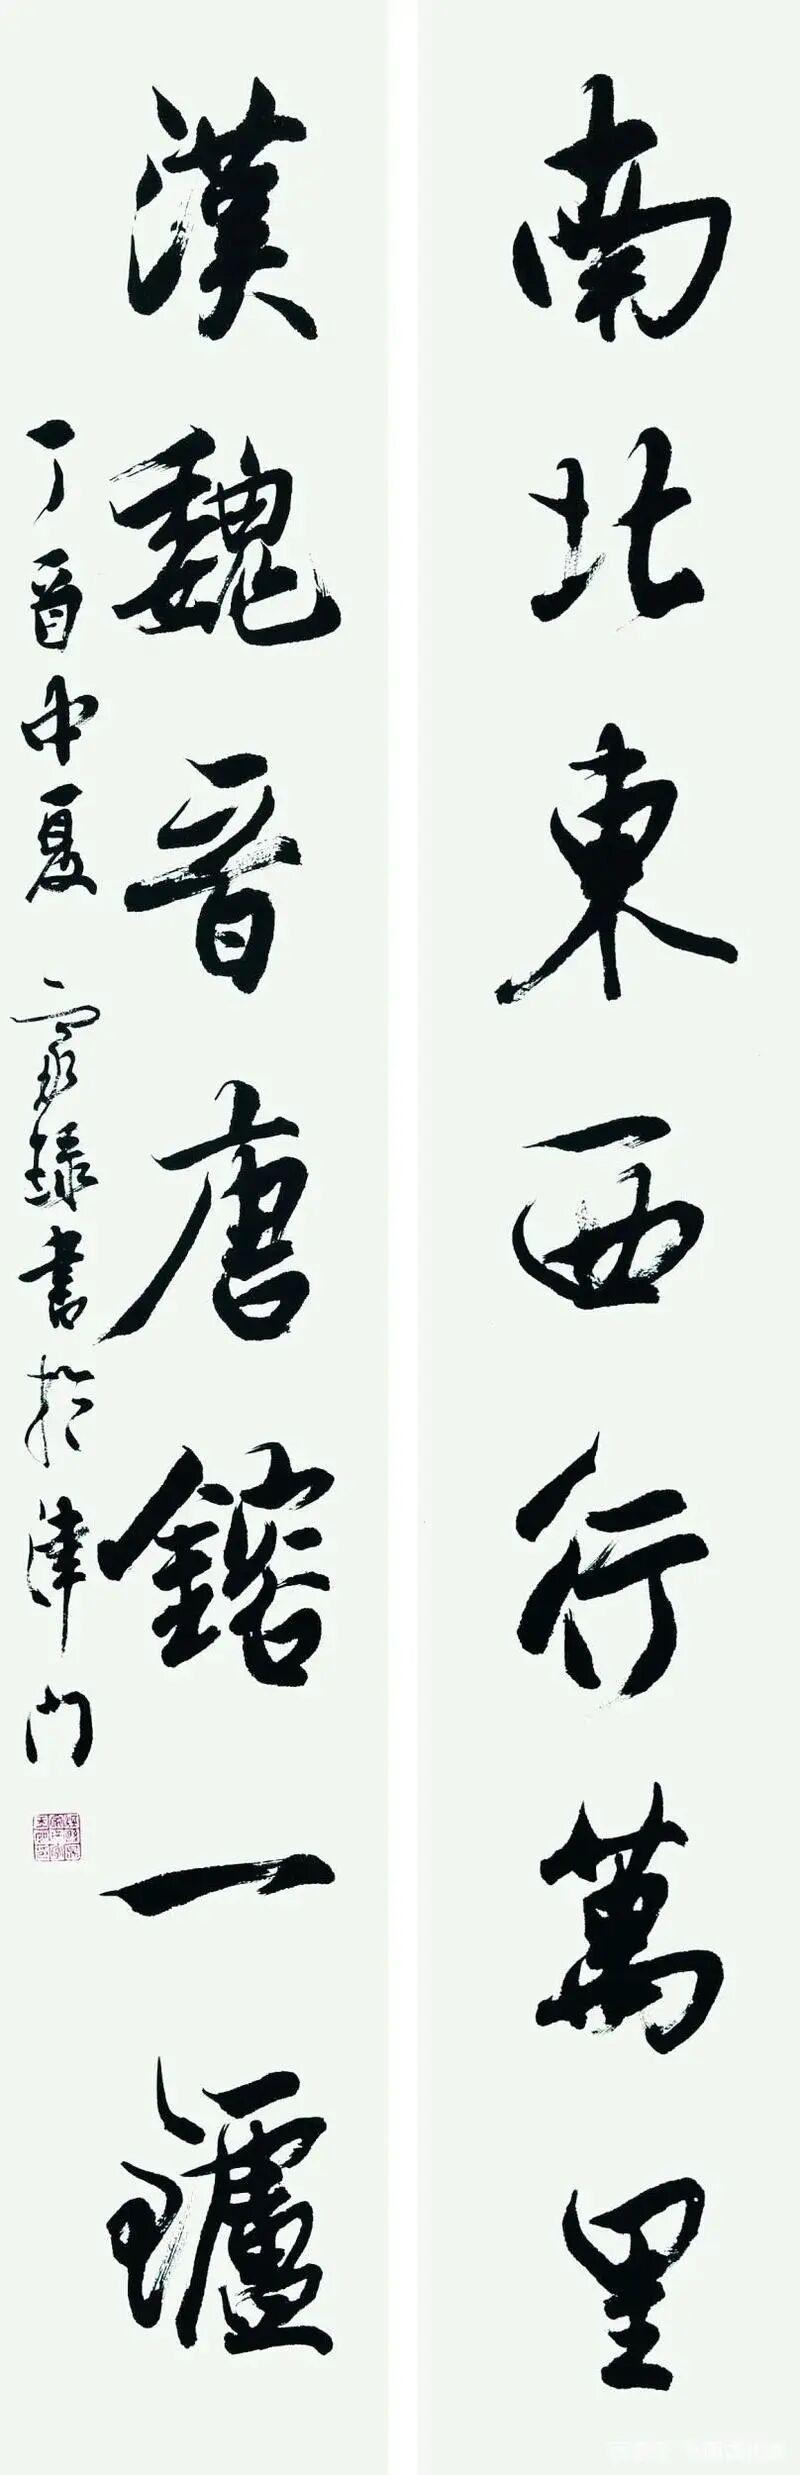 南北東西行萬里
漢魏晋唐鎔一鑪
丁酉中夏 家琭書於津门